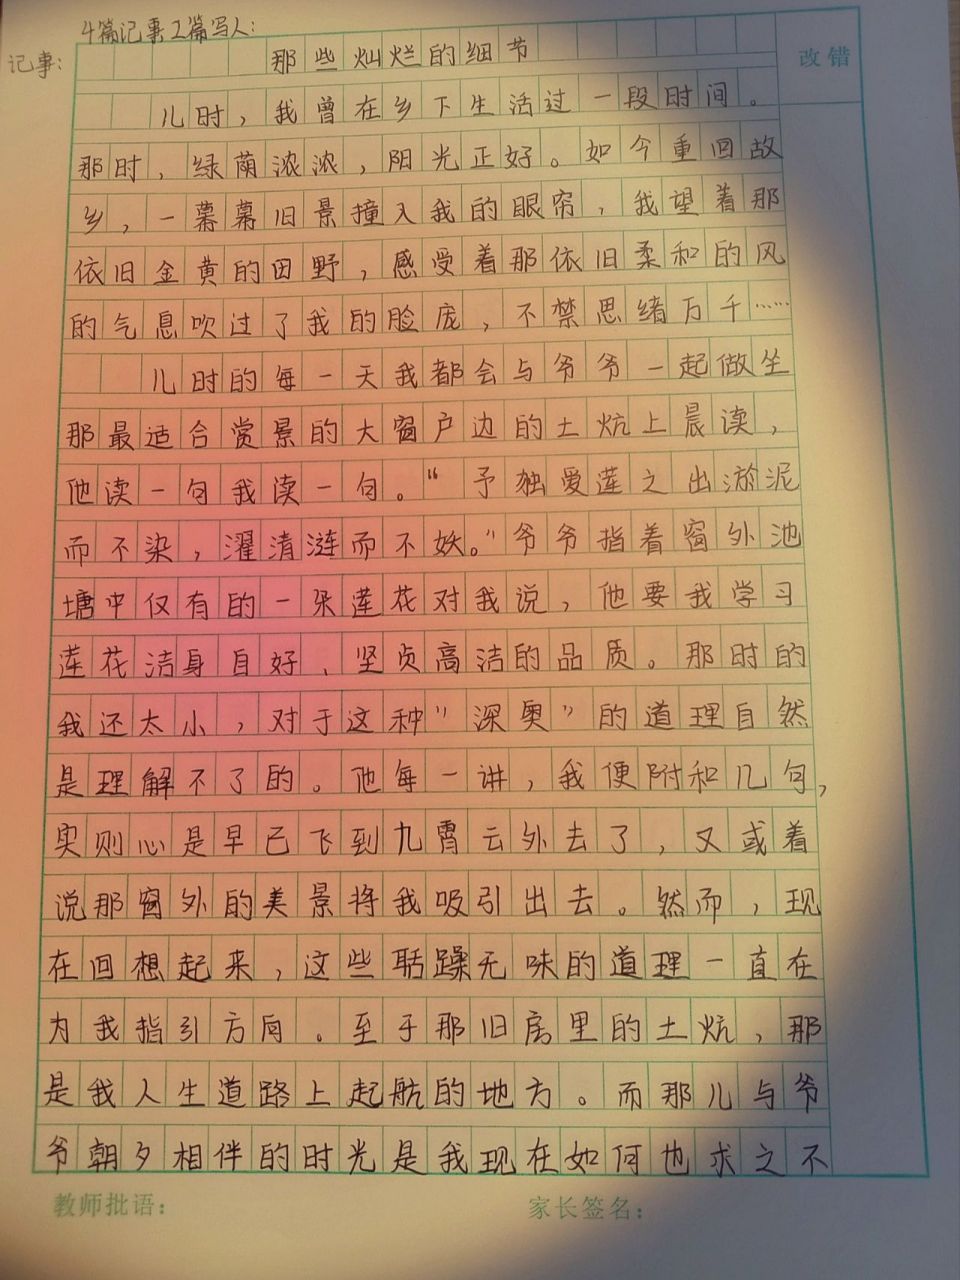 4篇记事2篇写人:
记事:
那些灿烂的细节
改错
儿时,我曾在乡下生活过一段时间。
那时,绿荫浓浓,阳光正好。如今重回故
乡,一幕幕旧景撞入我的眼帘,我望着那
依旧金黄的田野,感受着那依旧柔和的风
的气息吹过了我的脸庞,不禁思绪万千……
儿时的每一天我都会与爷爷一起做坐
那最适合赏景的大窗户边的土炕上晨读,
他读一句我读一句。“予独爱莲之出淤泥
而不染,濯清涟而不妖。”爷爷指着窗外池
塘中仅有的一朵莲花对我说,他要我学习
莲花洁身自好、坚贞高洁的品质。那时的
我还太小,对于这种“深奥”的道理自然
是理解不了的。他每一讲,我便附和几句,
实则心是早已飞到九霄云外去了,又或着
说那窗外的美景将我吸引出去。然而,现
在回想起来,这些聒躁无味的道理一直在
为我指引方向。至于那旧房里的土炕,那
是我人生道路上起航的地方。而那儿与爷
爷朝夕相伴的时光是我现在如何也求之不
教师批语:
家长签名: